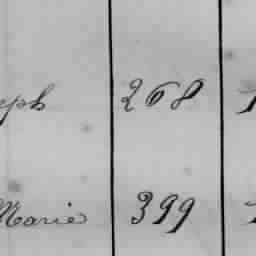 eph 268
Marie 399